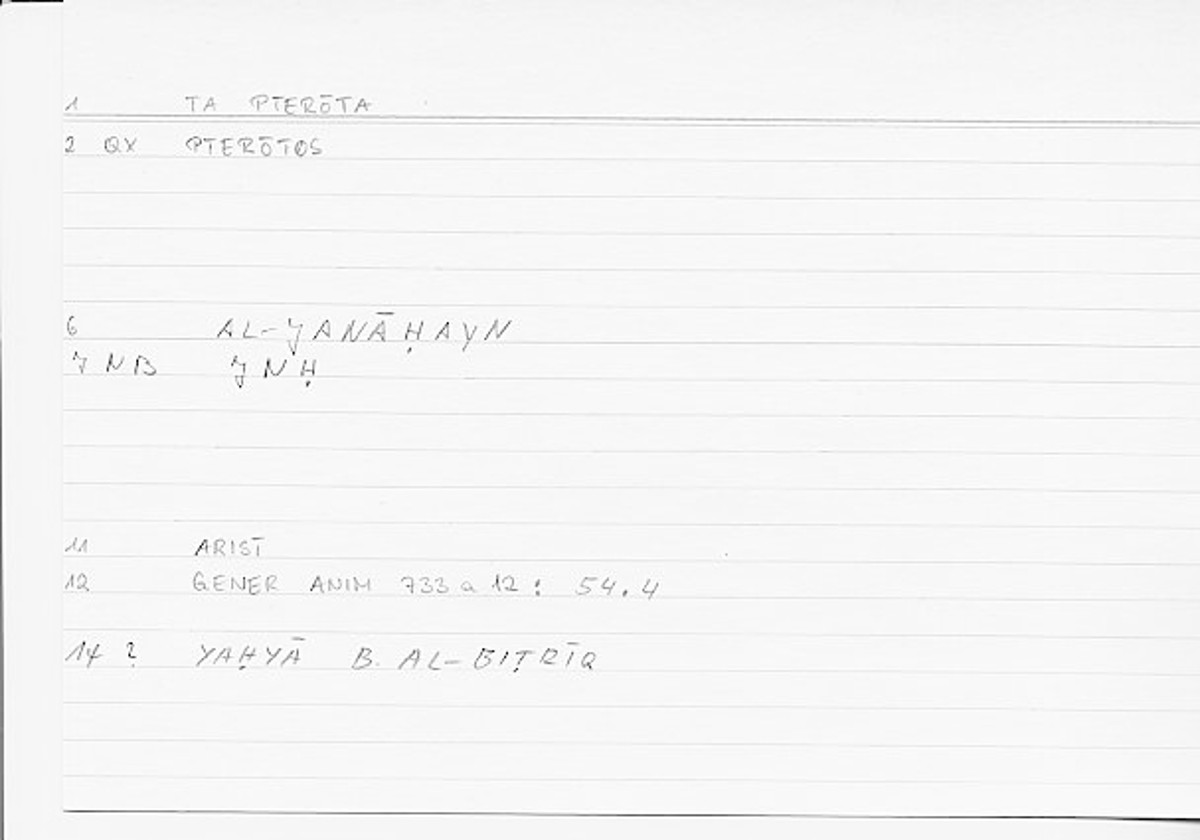 1 TA PTERŌTA
2 QX PTERŌTOS
6 AL-JANĀḤAYN
7 NB JNḤ
11 ARIST
12 GENER ANIM 733 a 12 : 54.4
14 ? YAḤYĀ B. AL-BIṬRĪQ